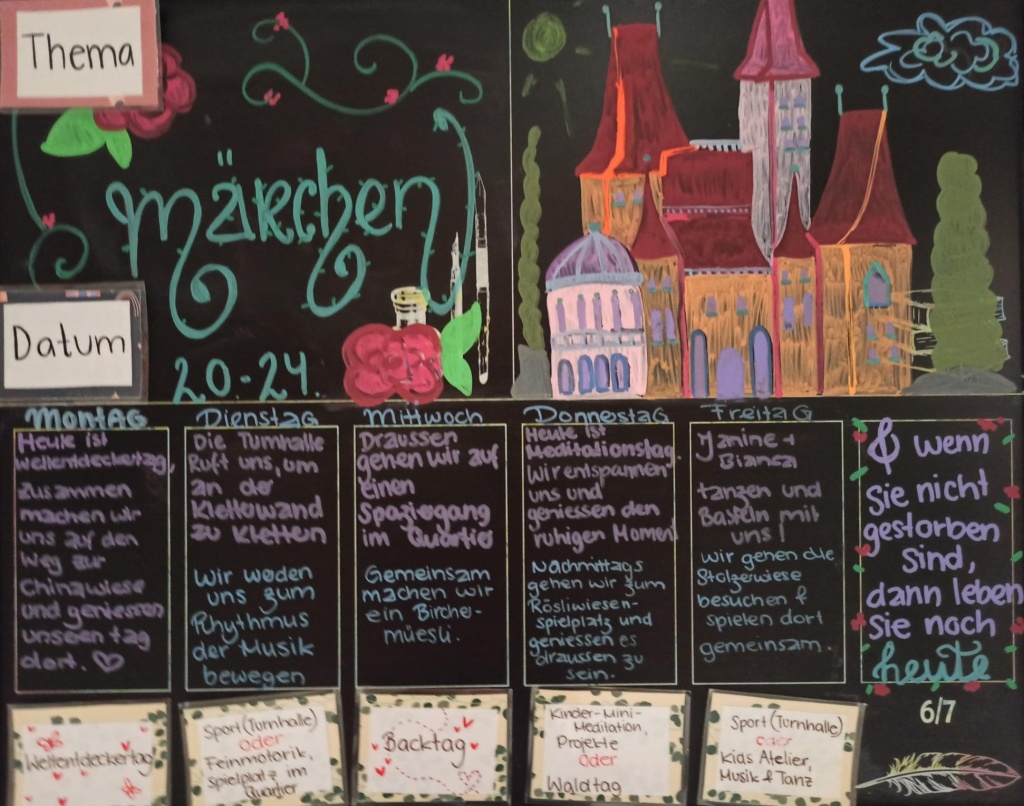 Thema
Märchen
Datum
20.-24.
Montag
Heute ist
Weltentdeckertag,
zusammen
machen wir
uns auf den
Weg zur
Chinawiese
und geniessen
unseren tag
dort. ♡
Dienstag
Die Turnhalle
Ruft uns, um
an der
Kletterwand
zu Kletten
Wir werden
uns zum
Rhythmus
der Musik
bewegen
Mittwoch
Draussen
gehen wir auf
einen
Spaziergang
im Quartier
Gemeinsam
machen wir
ein Birche-
müesli.
Donnestag
Heute ist
Meditationstag.
Wir entspannen
uns und
geniessen den
ruhigen Moment
Nachmittags
gehen wir zum
Rösliwiesen-
spielplatz und
geniessen es
draussen zu
sein.
Freitag
Janine +
Bianca
tanzen und
Basteln mit
uns!
Wir gehen die
Stolzewiese
besuchen &
spielen dort
gemeinsam.
& wenn
Sie nicht
gestorben
sind,
dann leben
Sie noch
heute
6/7
Weltentdeckertag
Sport (Turnhalle)
oder
Feinmotorik,
Spielplatz im
Quartier
Backtag
Kinder-Mini-
Meditation,
Projekte
oder
Waldtag
Sport (Turnhalle)
oder
Kids Atelier,
Musik & Tanz